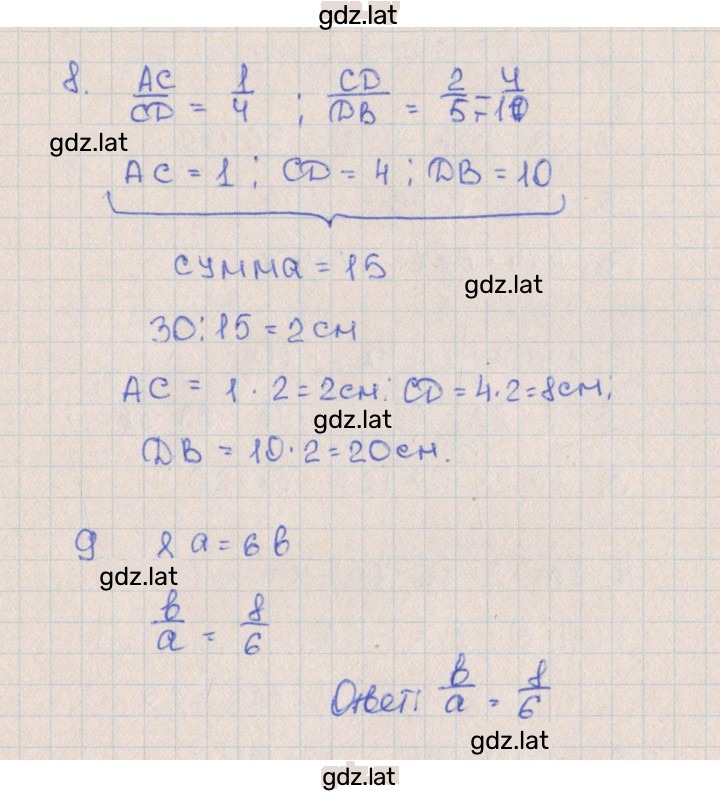 gdz.lat
8. AC/CD = 1/4 ; CD/DB = 2/5 = 4/10
gdz.lat
AC = 1 ; CD = 4 ; DB = 10
сумма = 15
gdz.lat
30 : 15 = 2 см
AC = 1 · 2 = 2 см ; CD = 4 · 2 = 8 см ;
gdz.lat
DB = 10 · 2 = 20 см.
9 8 a = 6 b
gdz.lat
b/a = 8/6
Ответ: b/a = 8/6
gdz.lat
gdz.lat